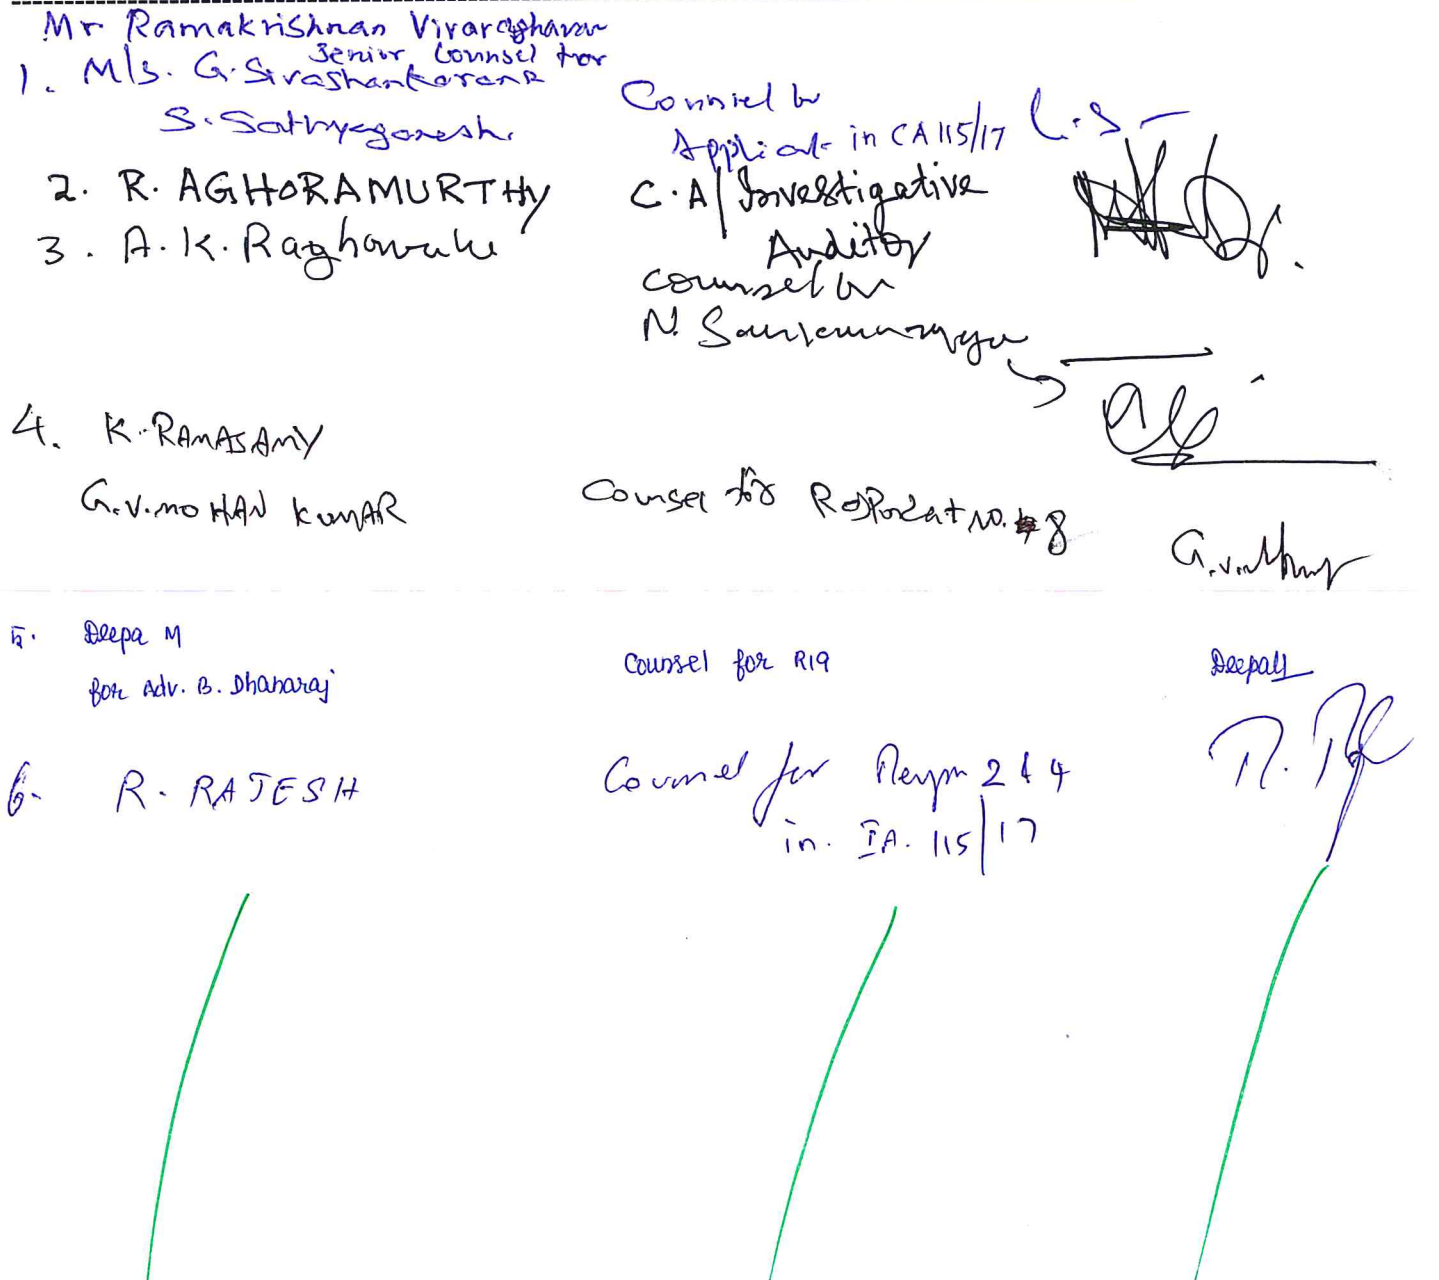 Mr Ramakrishnan Viraraghavan
Senior Counsel for
1. M/s. G. Sivashankaran &
S. Sathyaganesh.
Counsel for
Applicant in CA 115/17
2. R. AGHORAMURTHY
C.A / Investigative
Auditor
3. A.K. Raghavulu
Counsel for
N.
4. K. RAMASAMY
G.V. MOHAN KUMAR
Counsel for Respondent NO. 8
5. Deepa M
for Adv. B. Dhanaraj
Counsel for R19
Deepa M
6. R. RAJESH
Counsel for 2 & 4
in. IA. 115/17